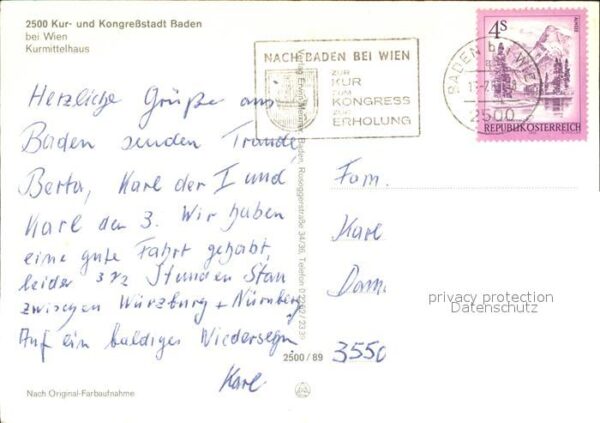 2500 Kur- und Kongreßstadt Baden
bei Wien
Kurmittelhaus
NACH BADEN BEI WIEN
ZUR
KUR
ZUM
KONGRESS
ZUR
ERHOLUNG
BADEN b. WIEN
2500
4 S
REPUBLIK ÖSTERREICH
Herzliche Grüße aus
Baden senden Traudl,
Berta, Karl der I und
Karl den 3. Wir haben
eine gute Fahrt gehabt,
leider 3 1/2 Stunden Stau
zwischen Würzburg + Nürnberg
Auf ein baldiges Wiedersehn
Karl
Fam.
Karl
Dam
3550
privacy protection
Datenschutz
Baden, Roseggerstraße 34/36, Telefon 0 22 52 / 23 39
2500/89
Nach Original-Farbaufnahme